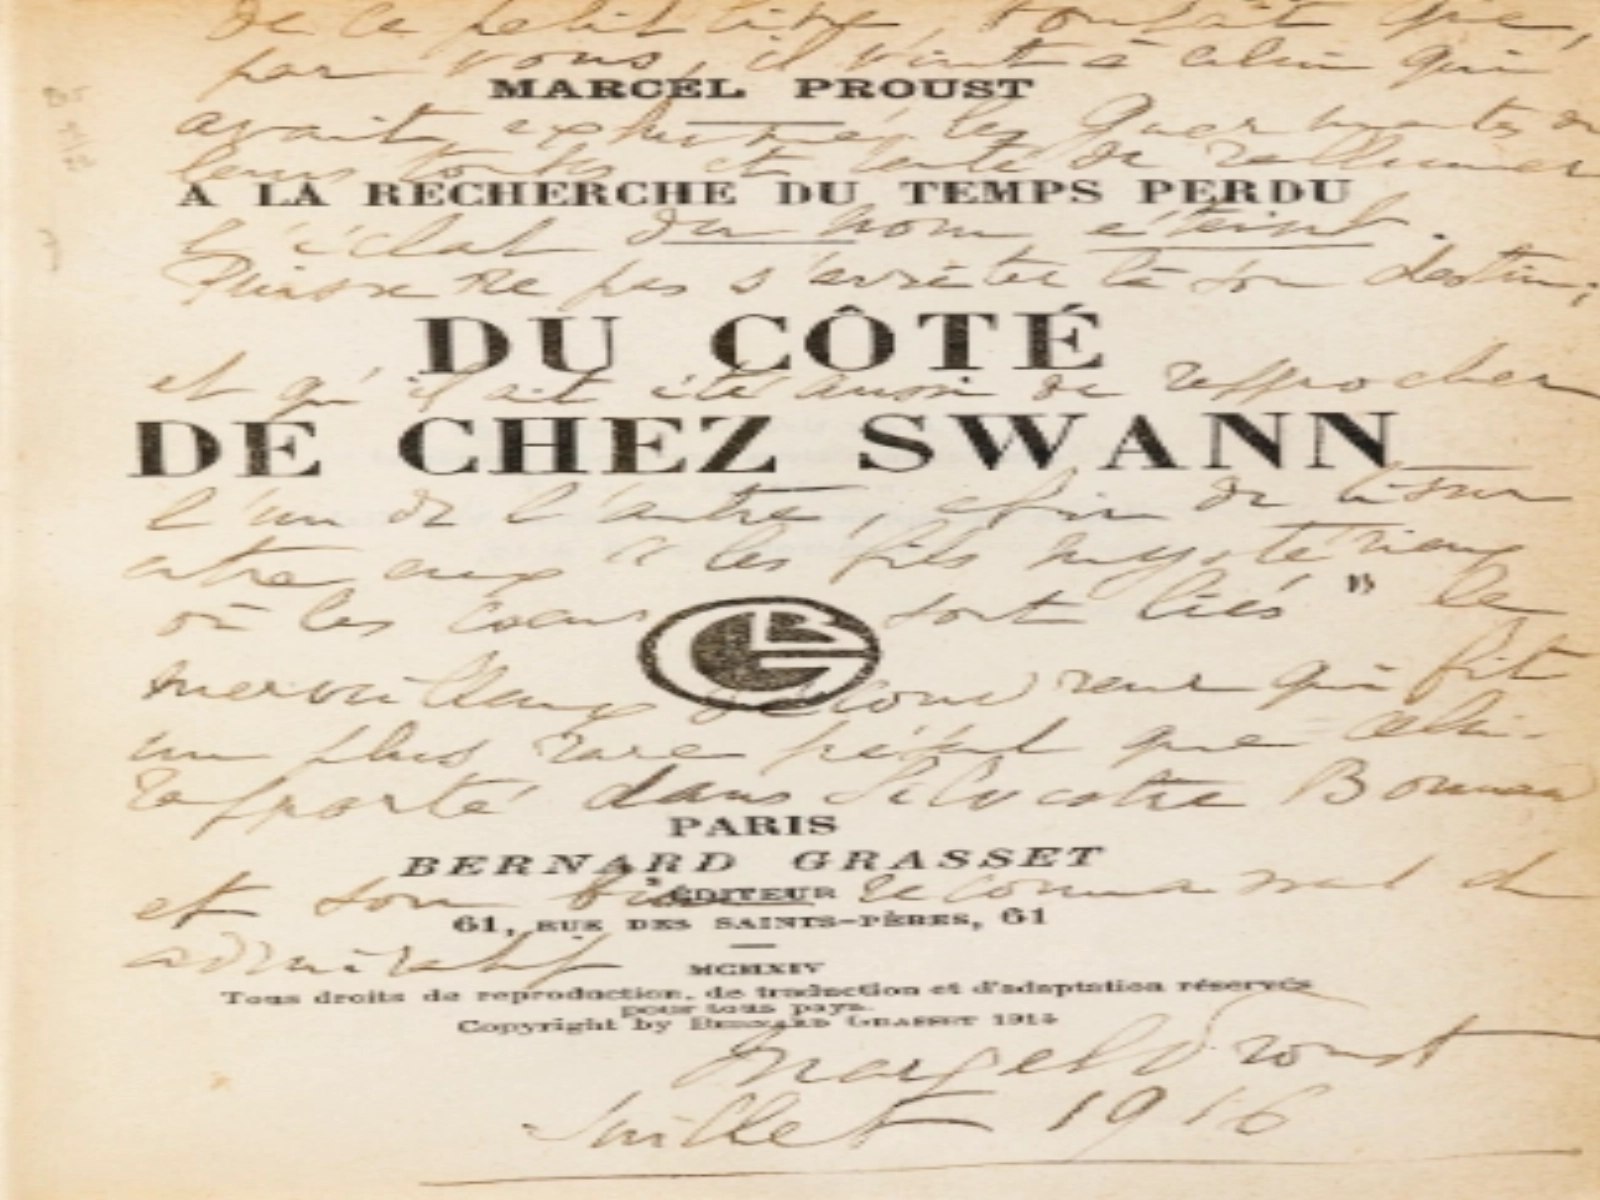 de ce petit livre, voulait que,
par vous, il vint à celui qui
MARCEL PROUST
avait exhumé les Guermantes de
leurs tombes et tenté de rallumer
A LA RECHERCHE DU TEMPS PERDU
l'éclat du nom éteint.
Puisse ne pas s'arrêter là son destin;
DU CÔTÉ
et qu'il ait été aussi de rapprocher
DE CHEZ SWANN
l'un de l'autre, afin de tisser
entre eux "les fils mystérieux
où les cœurs sont liés" le
merveilleux qui fit
un plus rare que celui-
rapporté dans Silvestre Bonnard
PARIS
BERNARD GRASSET
ÉDITEUR
et son bien reconnaissant et
61, RUE DES SAINTS-PÈRES, 61
admiratif
MCMXIV
Tous droits de reproduction, de traduction et d'adaptation réservés
pour tous pays.
Copyright by BERNARD GRASSET 1913
Marcel Proust
Juillet 1916